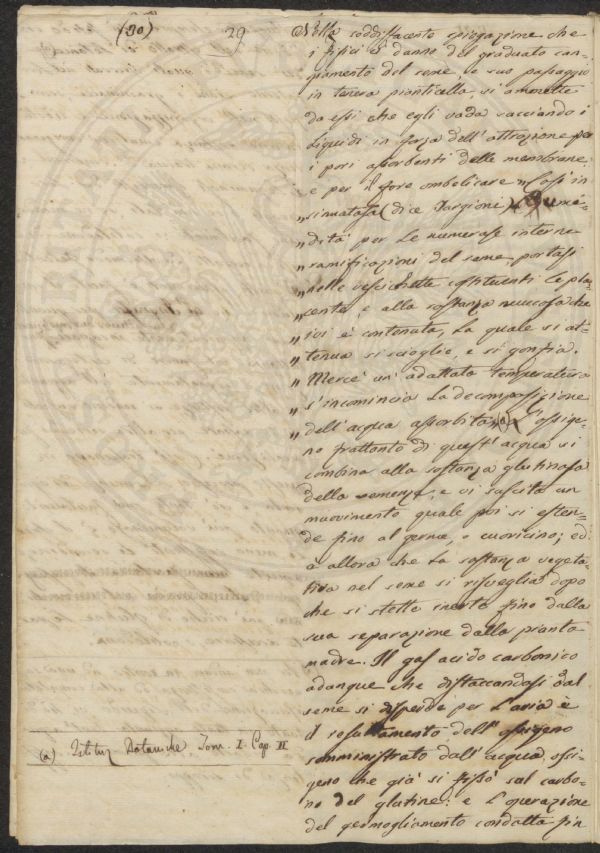 (30)
29
Nella soddisfacente spiegazione che
i fisici ci danno del graduato can-
giamento del seme, e suo passaggio
in tenera pianticella, si ammette
da essi che egli vada succiando i
liquidi in forza dell'attrazione per
i pori assorbenti delle membrane,
e per il foro ombelicare "Cossì in
"sinuatasi (dice Targioni) l'umi-
"dità per le numerose interne
"ramificazioni del seme portasi
"nelle vescichette costituenti la pla-
"centa, e alla sostanza mucosa che
"ivi è contenuta, la quale si at-
"tenua si scioglie, e si gonfia.
"Mercè un' adattata temperatura
"s'incomincia la decomposizione
"dell'acqua assorbita„(a) L'ossige-
no frattanto di quest'acqua si
combina alla sostanza glutinosa
della semenza, e vi suscita un
muovimento quale poi si esten-
de fino al germe, o cuoricino; ed
è allora che la sostanza vegeta-
tiva nel seme si risveglia dopo
che si stette inerte fino dalla
sua separazione dalla pianta
madre. Il gas acido carbonico
adunque che distaccandosi dal
seme si disperde per l'aria è
il resultamento dell'ossigeno
somministrato dall'acqua, ossi-
geno che già si fissò sul carbo-
no del glutine: e l'operazione
del germogliamento condotta fin
(a) Istituz Botaniche Tom. I. Cap. II